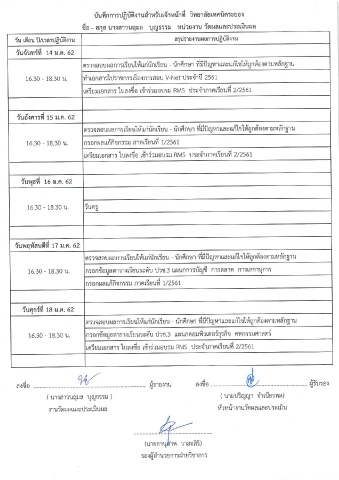 บันทึกการปฏิบัติงานสำหรับเจ้าหน้าที่ วิทยาลัยเทคนิคระยอง
ชื่อ - สกุล นางสาวนฤมล บุญธรรม หน่วยงาน วัดผลและประเมินผล
วัน เดือน ปี/เวลาปฏิบัติงาน สรุปรายงานผลการปฏิบัติงาน
วันจันทร์ที่ 14 ม.ค. 62
ตรวจสอบผลการเรียนให้แก่นักเรียน - นักศึกษา ที่มีปัญหาและแก้ไขให้ถูกต้องตามหลักฐาน
16.30 - 18.30 น. ทำเอกสารไปราชการเรื่องการสอบ V-Net ประจำปี 2561
เตรียมเอกสาร ใบลงชื่อ เข้าร่วมอบรม RMS ประจำภาคเรียนที่ 2/2561
วันอังคารที่ 15 ม.ค. 62
ตรวจสอบผลการเรียนให้แก่นักเรียน - นักศึกษา ที่มีปัญหาและแก้ไขให้ถูกต้องตามหลักฐาน
16.30 - 18.30 น. กรอกผลแก้กิจกรรม ภาคเรียนที่ 1/2561
เตรียมเอกสาร ใบลงชื่อ เข้าร่วมอบรม RMS ประจำภาคเรียนที่ 2/2561
วันพุธที่ 16 ม.ค. 62
16.30 - 18.30 น. วันครู
วันพฤหัสบดีที่ 17 ม.ค. 62
ตรวจสอบผลการเรียนให้แก่นักเรียน - นักศึกษา ที่มีปัญหาและแก้ไขให้ถูกต้องตามหลักฐาน
16.30 - 18.30 น. กรอกข้อมูลตารางเรียนระดับ ปวช.3 แผนกการบัญชี การตลาด
กรอกผลแก้กิจกรรม ภาคเรียนที่ 1/2561
วันศุกร์ที่ 18 ม.ค. 62
ตรวจสอบผลการเรียนให้แก่นักเรียน - นักศึกษา ที่มีปัญหาและแก้ไขให้ถูกต้องตามหลักฐาน
16.30 - 18.30 น. กรอกข้อมูลตารางเรียนระดับ ปวช.3 แผนกคอมพิวเตอร์ธุรกิจ
เตรียมเอกสาร ใบลงชื่อ เข้าร่วมอบรม RMS ประจำภาคเรียนที่ 2/2561
ลงชื่อ ผู้รายงาน ลงชื่อ ผู้รับรอง
( นางสาวนฤมล บุญธรรม )
งานวัดผลและประเมินผล หัวหน้างานวัดผลและประเมิน
รองผู้อำนวยการฝ่ายวิชาการ